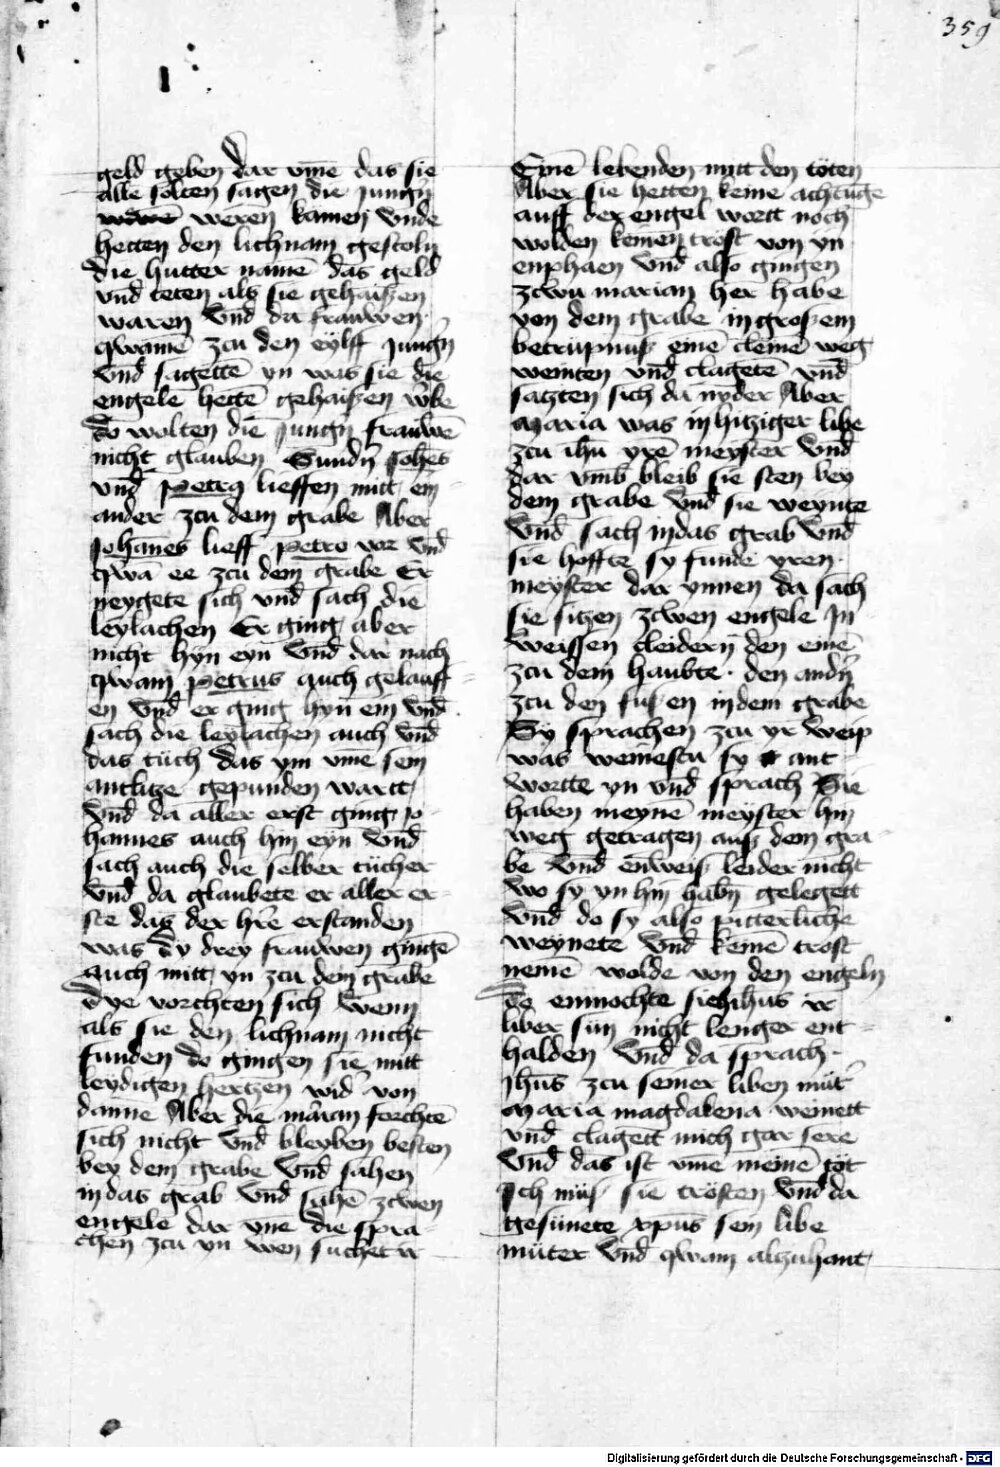 359
geld geben dar vmē das sie
alle solten sagen die jungn̄
weren kamen vnde
hetten den lichnam gestoln
die hutter namē das geld
vnd teten als sie gehaißen
waren Vnd da frauwen
qwamē zcu den eylff jungn̄
Vnd sagettē yn was sie die
engele hettē gehaißen
So wolten die jungn̄ frauwē
nicht glauben Sundn̄ Johēs
vnd Petrꝯ lieffen mitt ein
ander zcu dem grabe Aber
Johānes lieff petro vor Vnd
qwā ee zcu dem grabe Er
neygete sich vnd sach die
leylachen Er ging aber
nicht hyn eyn Vnd dar nach
qwam Petrus auch gelauff
en Vnd er ging hyn ein Vnd
sach die leylachen auch Vnd
das tüch das ym vmē sein
antlitze gepunden wartt
Vnd da aller erst ging jo-
hannes auch hin eyn Vnd
sach auch die selber tücher
Vnd da glaubete er aller er-
ste das der hr̄e erstanden
was Dy drey frauwen gingē
auch mitt yn zcu dem grabe
Dye vorchten sich Wenn
als sie den lichnam nicht
funden do gingen sie mitt
leydigen hertzen wid' von
danne Aber die m̄rian forchtē
sich nicht Vnd bleyben besten
bey dem grabe Vnd sahen
in das grab Vnd sahē zcwen
engele dar ynē die spra-
chen zcu yn wen suchet ir
Einē lebenden mitt den töten
Aber sie hetten keine achtūge
auff der engel wortt noch
wolden keinen tröst von yn
enphaen Vnd also gingen
zcwu marian her habe
von dem grabe in großem
betrüpnuß einē cleinē weg
weinten vnd clagetē Vnd
satzten sich da nyder Aber
Maria was in hitziger libe
zcu ihū yrē meyster Vnd
dar vmb bleib sie sten bey
dem grabe Vnd sie weynte
Vnd sach in das grab Vnd
sie hoffte sy funde yren
meyster dar ynnen da sach
sie sitzen zcwen engele In
weissen cleidern den einē
zcu dem haubte den andn̄
zcu den fußen in dem grabe
Sy sprachen zcu yr weip
was weinestu sy ant-
wortte yn vnd sprach Sie
haben meynē meyster hin
weg getragen auß dem gra-
be Vnd enweiß leider nicht
wo sy yn hin habn̄ gelegett
Vnd do sy also pitterliche
weynete Vnd keinē trost
nemē wolde von den engeln
Do enmochte sich ihūs ir
liber sun nicht lenger ent-
halden Vnd da sprach
Jhūs zcu seiner liben müt'
Maria magdalena weinett
vnd clagett mich gar sere
Vnd das ist vmē meinē töt
Ich müß sie trösten Vnd da
gesunete xpūs sein libe
müter Vnd qwam altzuhant
Digitalisierung gefördert durch die Deutsche Forschungsgemeinschaft - DFG